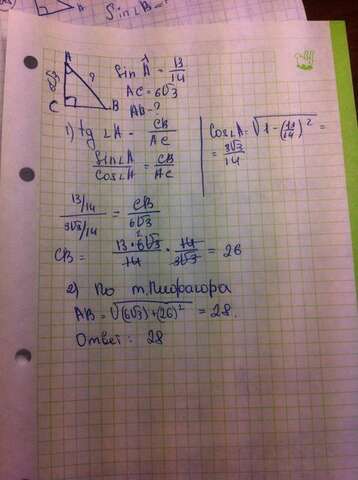 Sin∠B =
A
6√3
?
C
B
Sin Â = 13/14
AC = 6√3
AB - ?
1) tg∠A = CB/AC
Sin∠A/Cos∠A = CB/AC
Cos∠A = √(1 - (13/14)²) =
= 3√3/14
(13/14)/(3√3/14) = CB/6√3
CB = 13·6√3/14 · 14/3√3 = 26
2) По т. Пифагора
AB = √((6√3)+(26)²) = 28.
Ответ: 28